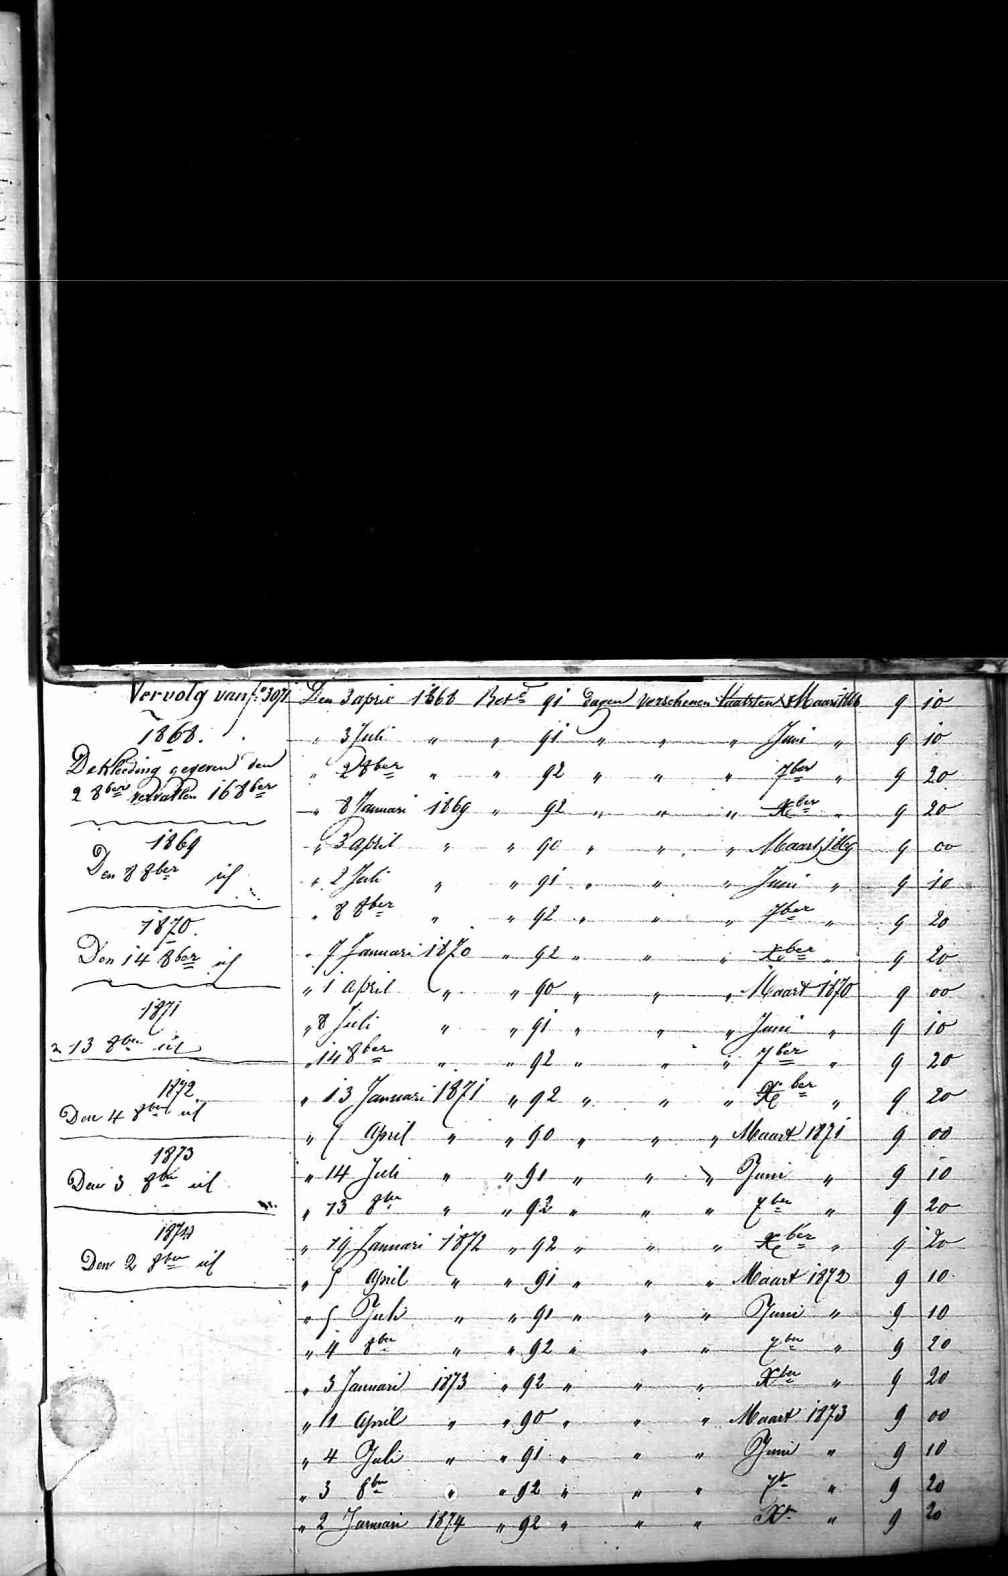 Vervolg van f° 397
1868.
De Kleeding gegeven den
2 8ber vervallen 16 8ber
1869
Den 8 8ber id
1870.
Den 14 8ber id
1871
" 13 8ber id
1872
Den 4 8ber id
1873
Den 3 8ber id
1874
Den 2 8ber id
Den 3 april 1868 Bete 91 dagen verschenen Maart 1868 9 10
" 3 Juli " " 91 " " " Juni " 9 10
" 2 8ber " " 92 " " " 7ber " 9 20
" 8 Januari 1869 " 92 " " " Xber " 9 20
" 3 april " " 90 " " " Maart 1869 9 00
" 2 Juli " " 91 " " " Juni " 9 10
" 8 8ber " " 92 " " " 7ber " 9 20
" 7 Januari 1870 " 92 " " " Xber " 9 20
" 1 april " " 90 " " " Maart 1870 9 00
" 8 Juli " " 91 " " " Juni " 9 10
" 14 8ber " " 92 " " " 7ber " 9 20
" 13 Januari 1871 " 92 " " " Xber " 9 20
" 7 April " " 90 " " " Maart 1871 9 00
" 14 Juli " " 91 " " " Juni " 9 10
" 13 8ber " " 92 " " " 7ber " 9 20
" 19 Januari 1872 " 92 " " " Xber " 9 20
" 5 April " " 91 " " " Maart 1872 9 10
" 5 Juli " " 91 " " " Juni " 9 10
" 4 8ber " " 92 " " " 7ber " 9 20
" 3 Januari 1873 " 92 " " " Xber " 9 20
" 11 April " " 90 " " " Maart 1873 9 00
" 4 Juli " " 91 " " " Juni " 9 10
" 3 8ber " " 92 " " " 7r " 9 20
" 2 Januari 1874 " 92 " " " Xr " 9 20